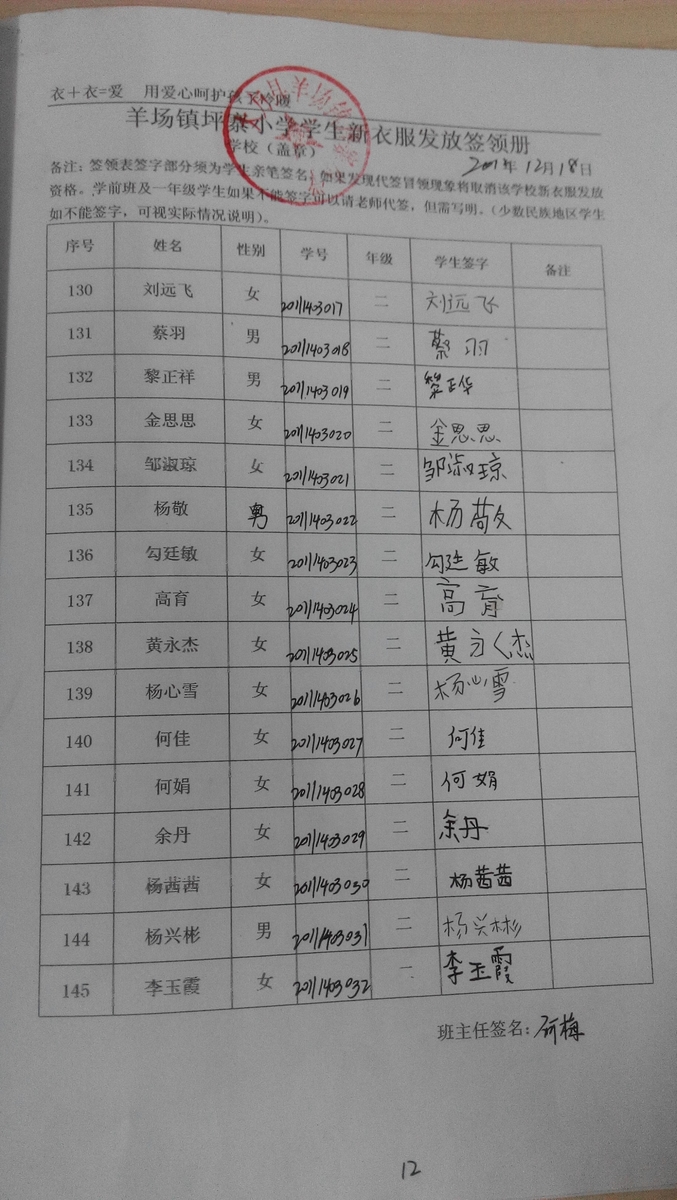 衣+衣=爱 用爱心呵护孩子冷暖
羊场镇坪寨小学学生新衣服发放签领册
学校（盖章） 2014年12月18日
备注：签领表签字部分须为学生亲笔签名，如果发现代签冒领现象将取消该学校新衣服发放
资格。学前班及一年级学生如果不能签字可以请老师代签，但需写明。（少数民族地区学生
如不能签字，可视实际情况说明）。
序号 姓名 性别 学号 年级 学生签字 备注
130 刘远飞 女 2011403017 二 刘远飞
131 蔡羽 男 2011403018 二 蔡羽
132 黎正祥 男 2011403019 二
133 金思思 女 2011403020 二 金思思
134 邹淑琼 女 2011403021 二 邹淑琼
135 杨敬 男 2011403022 二 杨敬
136 勾廷敏 女 2011403023 二 勾廷敏
137 高育 女 2011403024 二 高育
138 黄永杰 女 2011403025 二 黄永杰
139 杨心雪 女 2011403026 二 杨心雪
140 何佳 女 2011403027 二 何佳
141 何娟 女 2011403028 二 何娟
142 余丹 女 2011403029 二 余丹
143 杨茜茜 女 2011403030 二 杨茜茜
144 杨兴彬 男 2011403031 二 杨兴彬
145 李玉霞 女 2011403032 李玉霞
班主任签名：何梅
12